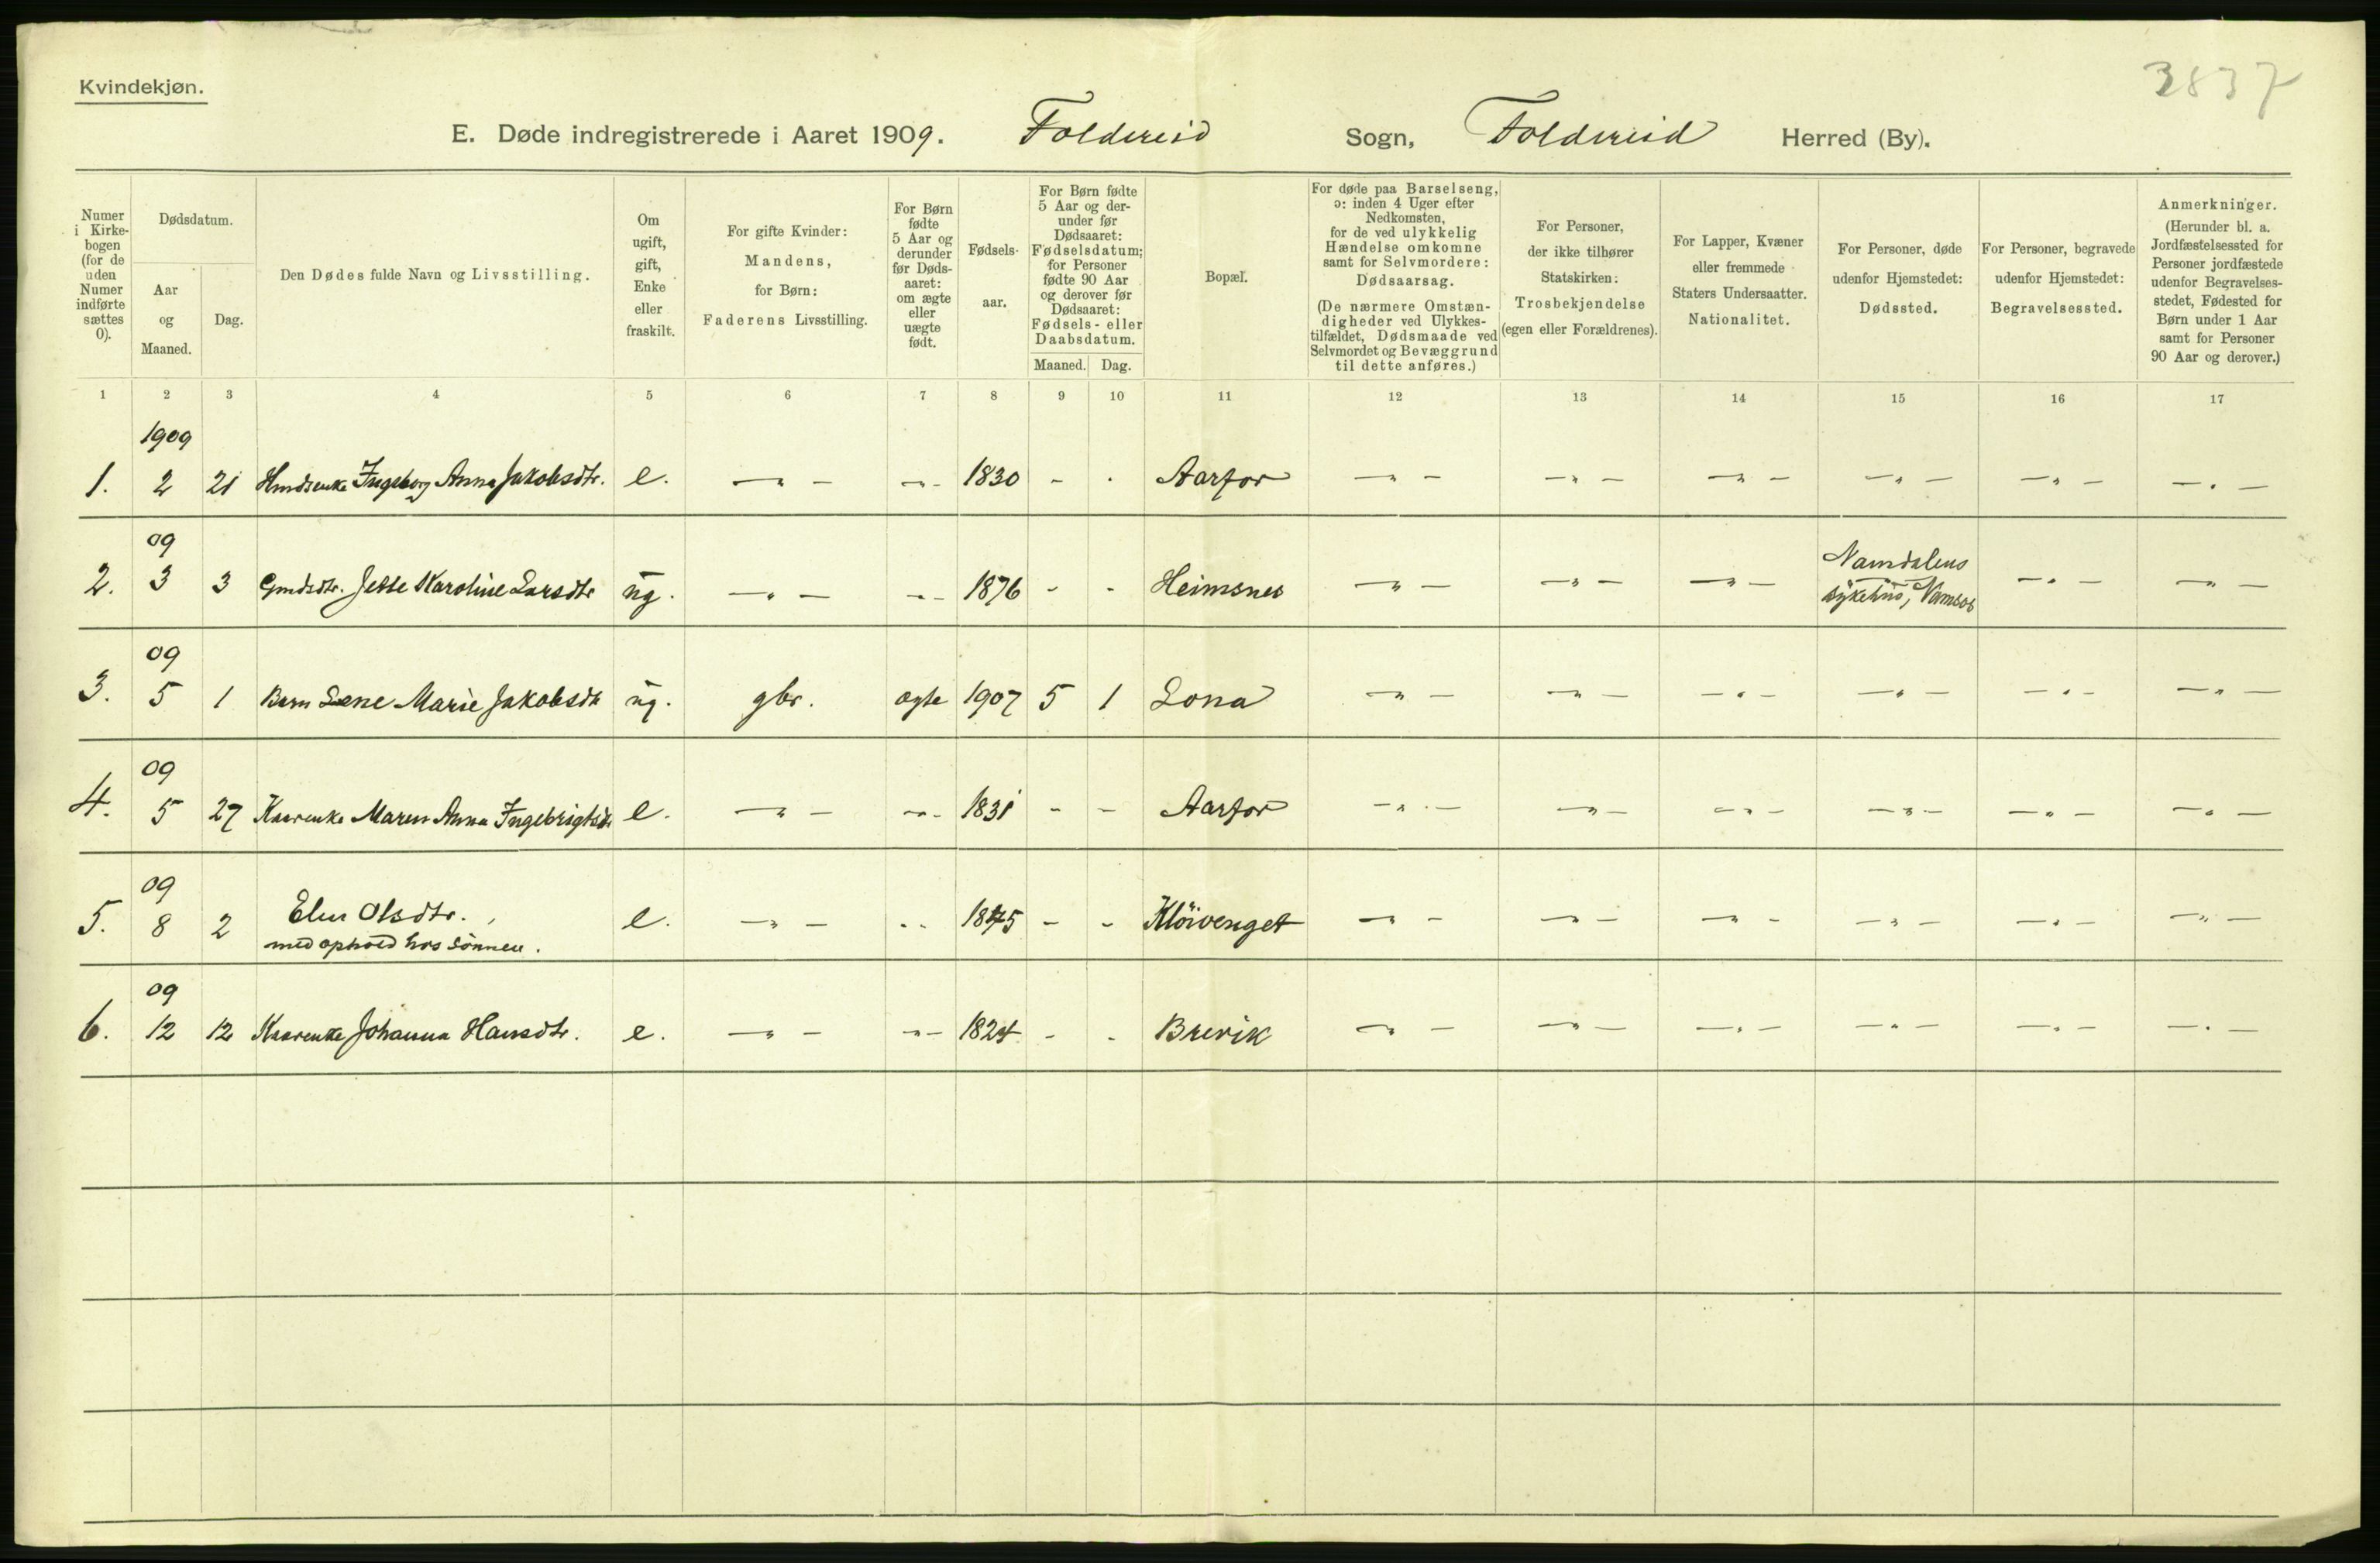 Kvindekjøn.
3837
E. Døde indregistrerede i Aaret 1909. Foldereid Sogn, Foldereid Herred (By).
Numer i Kirkebogen (for de uden Numer indførte sættes 0).
Dødsdatum.
Aar og Maaned.
Dag.
Den Dødes fulde Navn og Livsstilling.
Om ugift, gift, Enke eller fraskilt.
For gifte Kvinder: Mandens, for Børn: Faderens Livsstilling.
For Børn fødte 5 Aar og derunder før Dødsaaret: om ægte eller uægte født.
Fødselsaar.
For Børn fødte 5 Aar og derunder før Dødsaaret: Fødselsdatum; for Personer fødte 90 Aar og derover før Dødsaaret: Fødsels- eller Daabsdatum.
Maaned. Dag.
Bopæl.
For døde paa Barselseng, ɔ: inden 4 Uger efter Nedkomsten, for de ved ulykkelig Hændelse omkomne samt for Selvmordere: Dødsaarsag.
(De nærmere Omstændigheder ved Ulykkestilfældet, Dødsmaade ved Selvmordet og Bevæggrund til dette anføres.)
For Personer, der ikke tilhører Statskirken: Trosbekjendelse (egen eller Forældrenes).
For Lapper, Kvæner eller fremmede Staters Undersaatter. Nationalitet.
For Personer, døde udenfor Hjemstedet: Dødssted.
For Personer, begravede udenfor Hjemstedet: Begravelsessted.
Anmerkninger. (Herunder bl. a. Jordfæstelsessted for Personer jordfæstede udenfor Begravelsesstedet, Fødested for Børn under 1 Aar samt for Personer 90 Aar og derover.)
1 2 3 4 5 6 7 8 9 10 11 12 13 14 15 16 17
1909
1. 2 21 Ingeborg Anna Jakobsdtr. e. —„— -„- 1830 - - Aarfor —„— —„— —„— —„— —„— —„—
09
2. 3 3 Gmdsdtr. Jette Karoline Larsdtr ug. —„— -„- 1876 - - Heimsnes —„— —„— —„— Namdalens sykehus, Namsos —„— —„—
09
3. 5 1 Barn Lene Marie Jakobsdtr ug. gbr. ægte 1907 5 1 Lona —„— —„— —„— —„— —„— —„—
09
4. 5 27 Kaarenke Maren Anna Ingebrigtsdtr e. —„— -„- 1831 - - Aarfor —„— —„— —„— —„— —„— —„—
09
5. 8 2 Elen Olsdtr. e. —„— -„- 1845 - - Klöivenget —„— —„— —„— —„— —„— —„—
med ophold hos sönnen.
09
6. 12 12 Kaarenke Johanna Hansdtr. e. —„— -„- 1824 - - Brevik —„— —„— —„— —„— —„— —„—